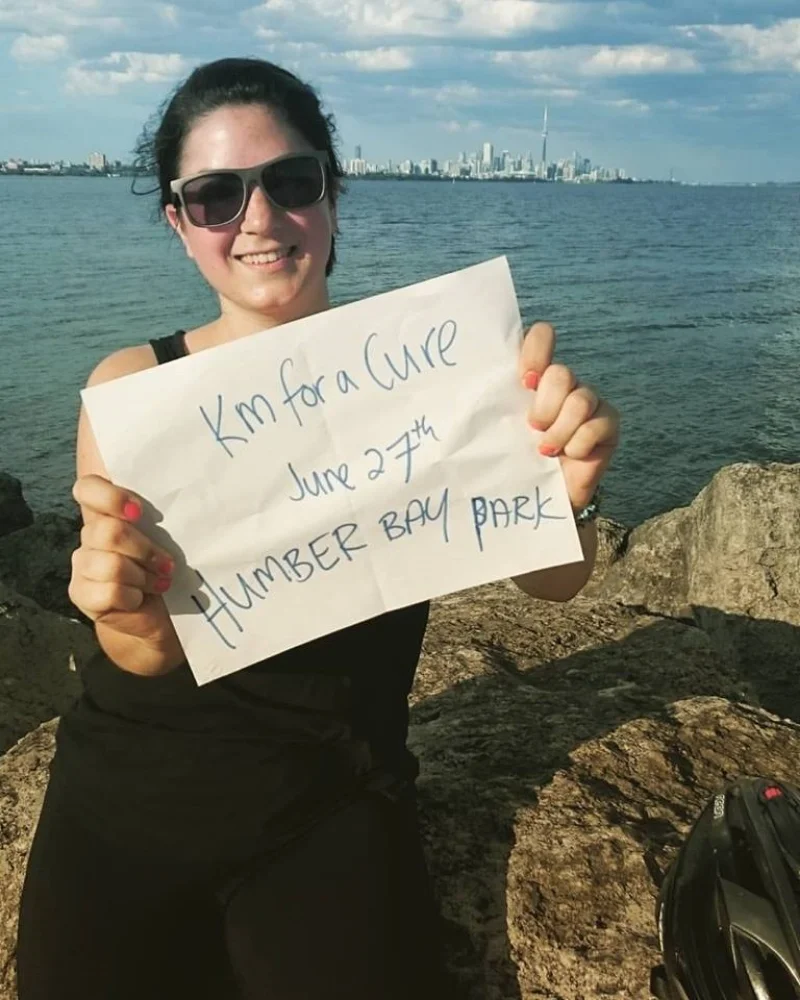 Km for a Cure
June 27th
HUMBER BAY PARK